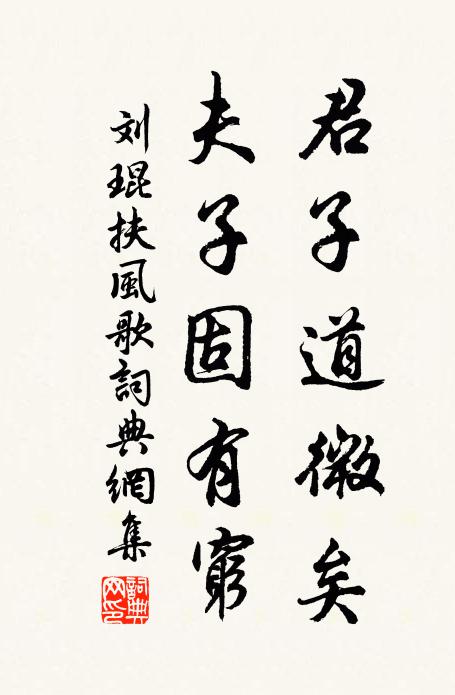 君子道微矣
夫子固有窮
刘琨扶風歌詞典網集
詞典网印